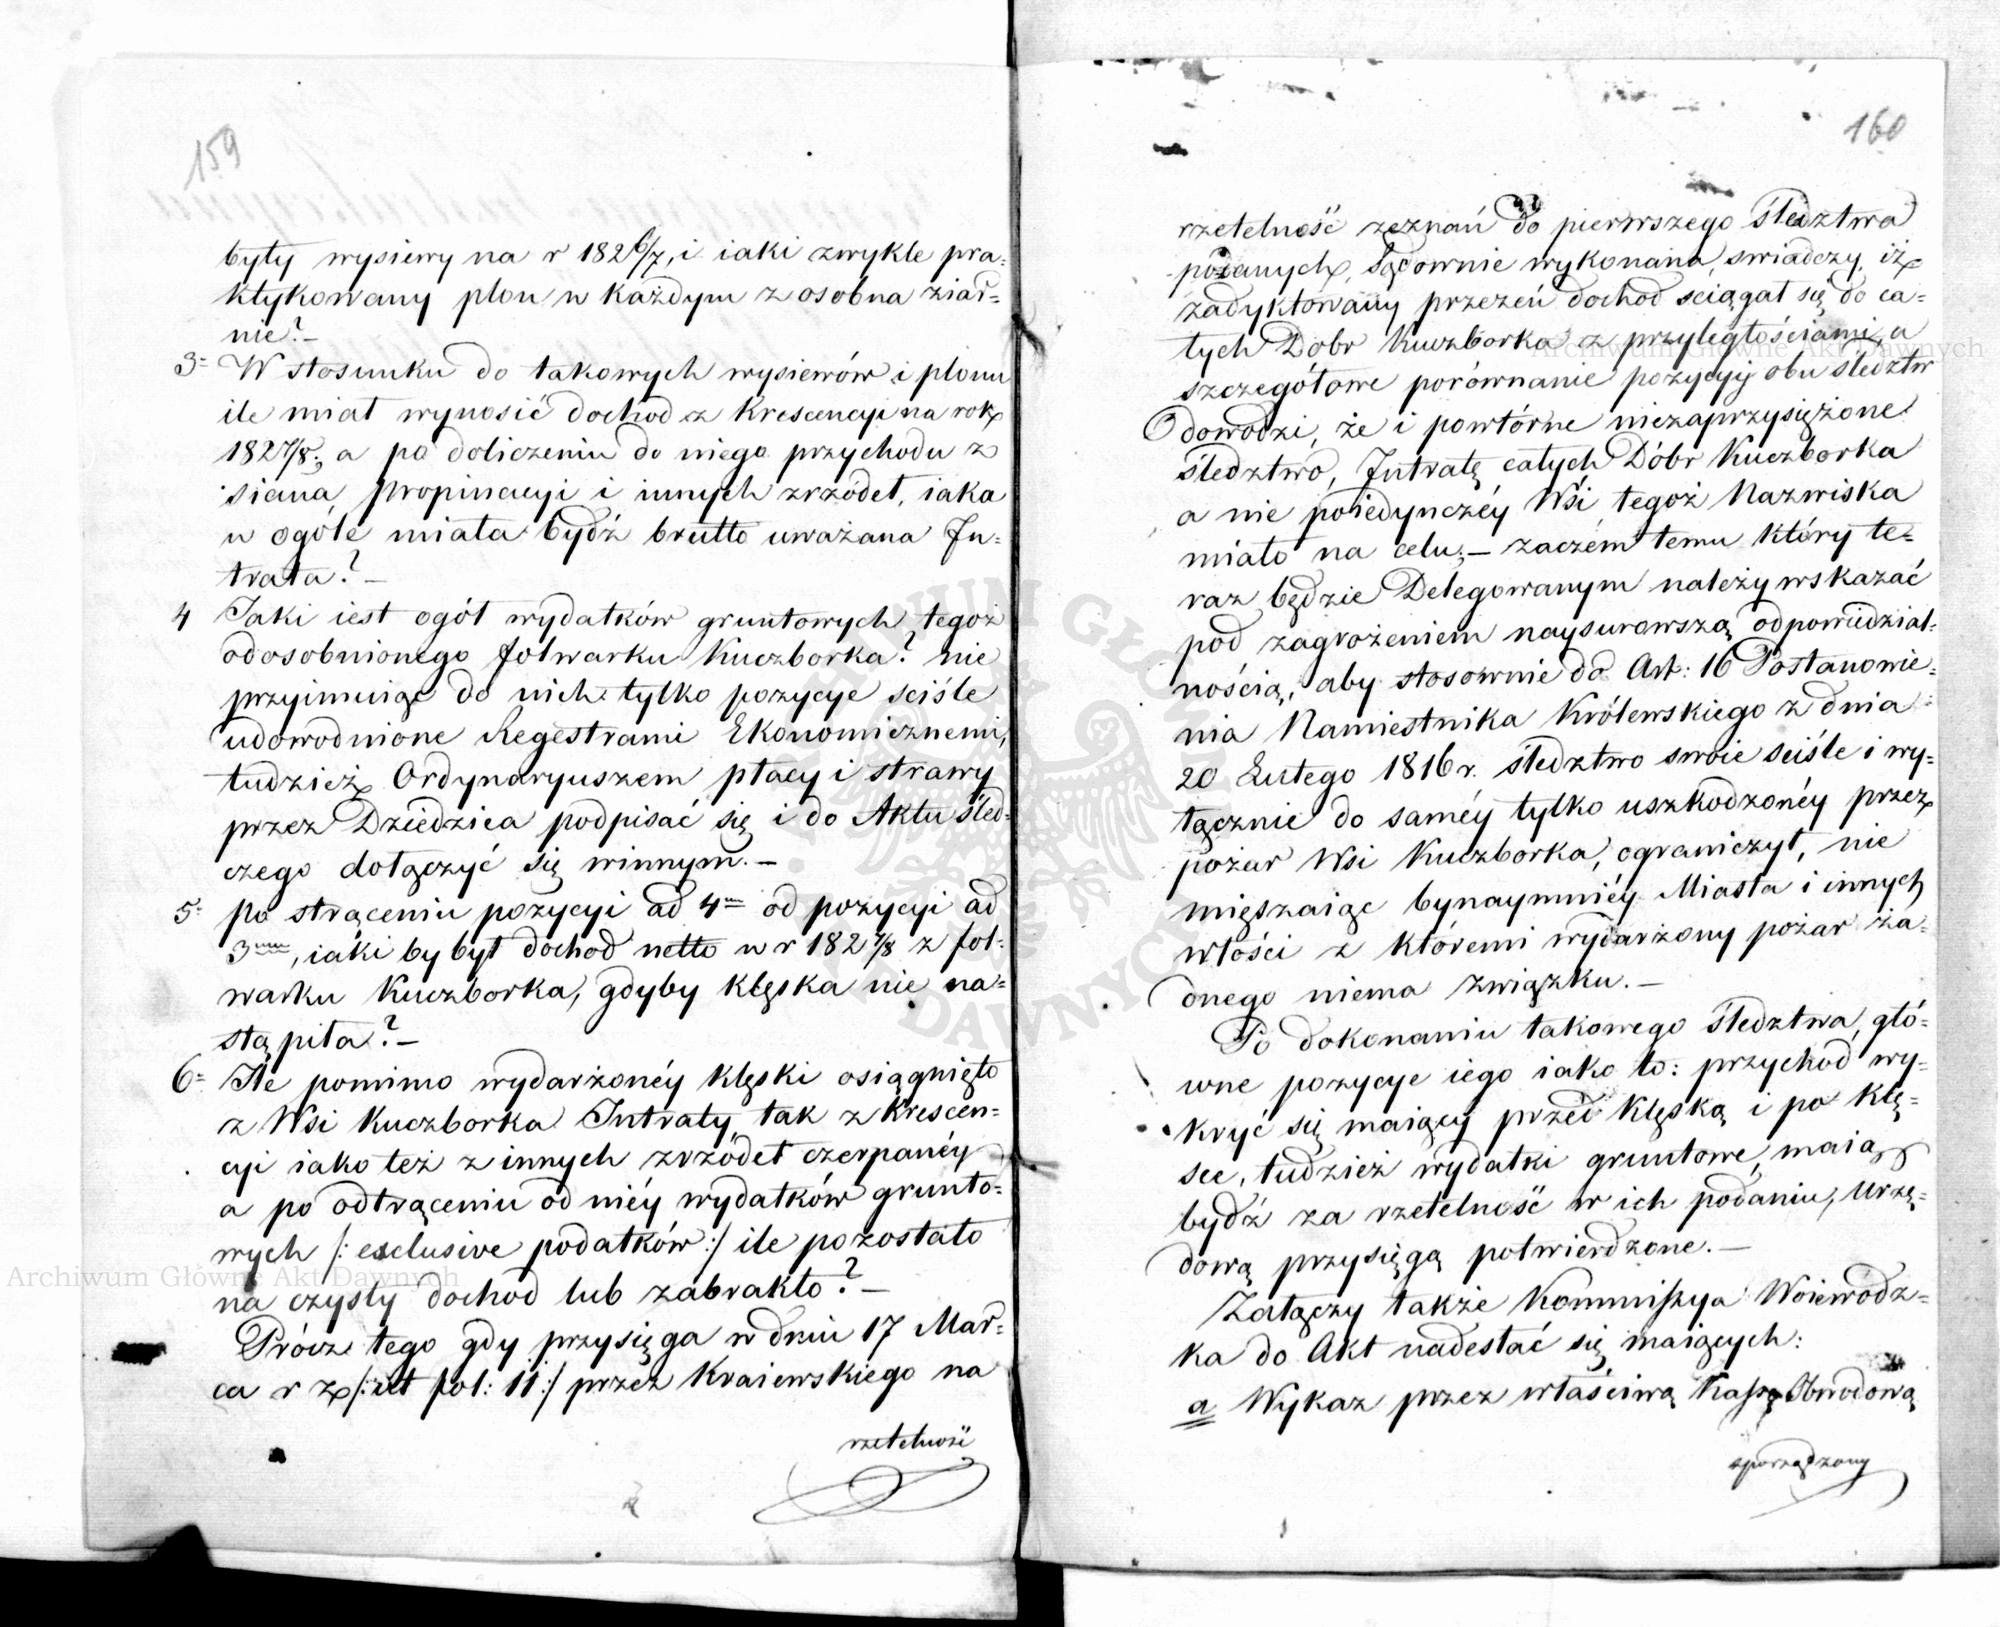 159
były wysiewy na r 182 6/7, i iaki zwykle pra-
ktykowany plon w każdym z osobna ziar-
nie? —
3= W stosunku do takowych wysiewów i plonu
ile miał wynosić dochod z Krescencyi na rok
182 7/8; a po doliczeniu do niego przychodu z
siana, propinacyi i innych zrzódeł, iaka
w ogóle miała bydź brutto uważana In-
trata? —
4 Jaki iest ogół wydatków gruntowych tegoż
odosobnionego folwarku Kuczborka? nie
przyimuiąc do nich tylko pozycye sciśle
udowodnione Regestrami Ekonomicznemi,
tudzież Ordynaryuszem płacy i strawy
przez Dziedzica podpisać się i do Aktu śled-
czego dołączyć się winnym. —
5= po strąceniu pozycyi ad 4m od pozycyi ad
3um, iaki by był dochod netto w r 182 7/8 z fol-
warku Kuczborka, gdyby klęska nie na-
stąpiła? —
6= Ile pomimo wydarzonéy klęski osiągnięto
z Wsi Kuczborka Intraty, tak z Krescen-
cyi iako też z innych zrzódeł czerpanéy
a po odtrąceniu od niéy wydatków grunto-
wych /: exclusive podatków :/ ile pozostało
na czysty dochod lub zabrakło? —
Prócz tego gdy przysięga w dniu 17 Mar-
ca r z /: fol: 11 :/ przez Kraiewskiego na
rzetelność
160
rzetelność zeznań do pierwszego śledztwa
podanych, sądownie wykonana, swiadczy, iż
zadyktowany przezeń dochod sciągał się do ca-
łych Dobr Kuczborka z przyległościami, a
szczegółowe porównanie pozycyy obu śledztw
dowodzi, że i powtórne niezaprzysiężone
śledztwo, Intratę całych Dóbr Kuczborka
a nie poiedynczéy Wsi tegoż Nazwiska
miało na celu; — zaczém temu który te-
raz będzie Delegowanym należy wskazać
pod zagrożeniem naysurowszą odpowiedzial-
nością, aby stosownie do Art: 16 Postanowie-
nia Namiestnika Królewskiego z dnia
20 Lutego 1816 r. śledztwo swoie sciśle i wy-
łącznie do saméy tylko uszkodzonéy przez
pożar Wsi Kuczborka, ograniczył, nie
mięszaiąc bynaymniéy Miasta i innych
włości z któremi wydarzony pożar ża-
dnego niema związku. —
Po dokonaniu takowego śledztwa, głó-
wne pozycye iego iako to: przychod wy-
kryć się maiący przed klęską i po klę-
sce, tudzież wydatki gruntowe, maią
bydź za rzetelność w ich podaniu, Urzę-
dową przysięgą potwierdzone. —
Załączy także Kommissya Woiewódz-
ka do Akt nadesłać się maiących:
a Wykaz przez właściwą Kassę Obwodową
sporządzony
Archiwum Główne Akt Dawnych
Archiwum Główne Akt Dawnych
ARCHIWUM GŁÓWNE AKT DAWNYCH